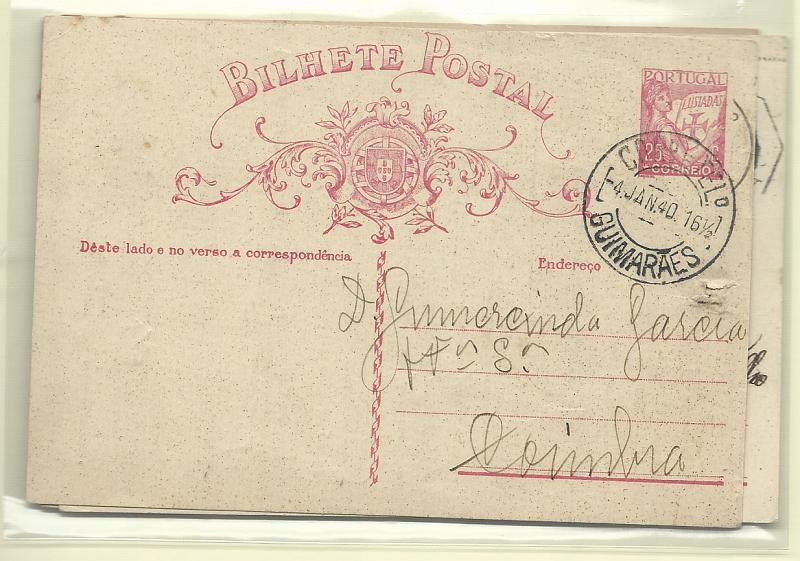 BILHETE POSTAL
PORTUGAL
LUSIADAS
25 C.
CORREIO
CORR. E TELº
-4.JAN.40. 16½
GUIMARÃES
Dêste lado e no verso a correspondência
Endereço
D. Gumercinda Garcia
Coimbra